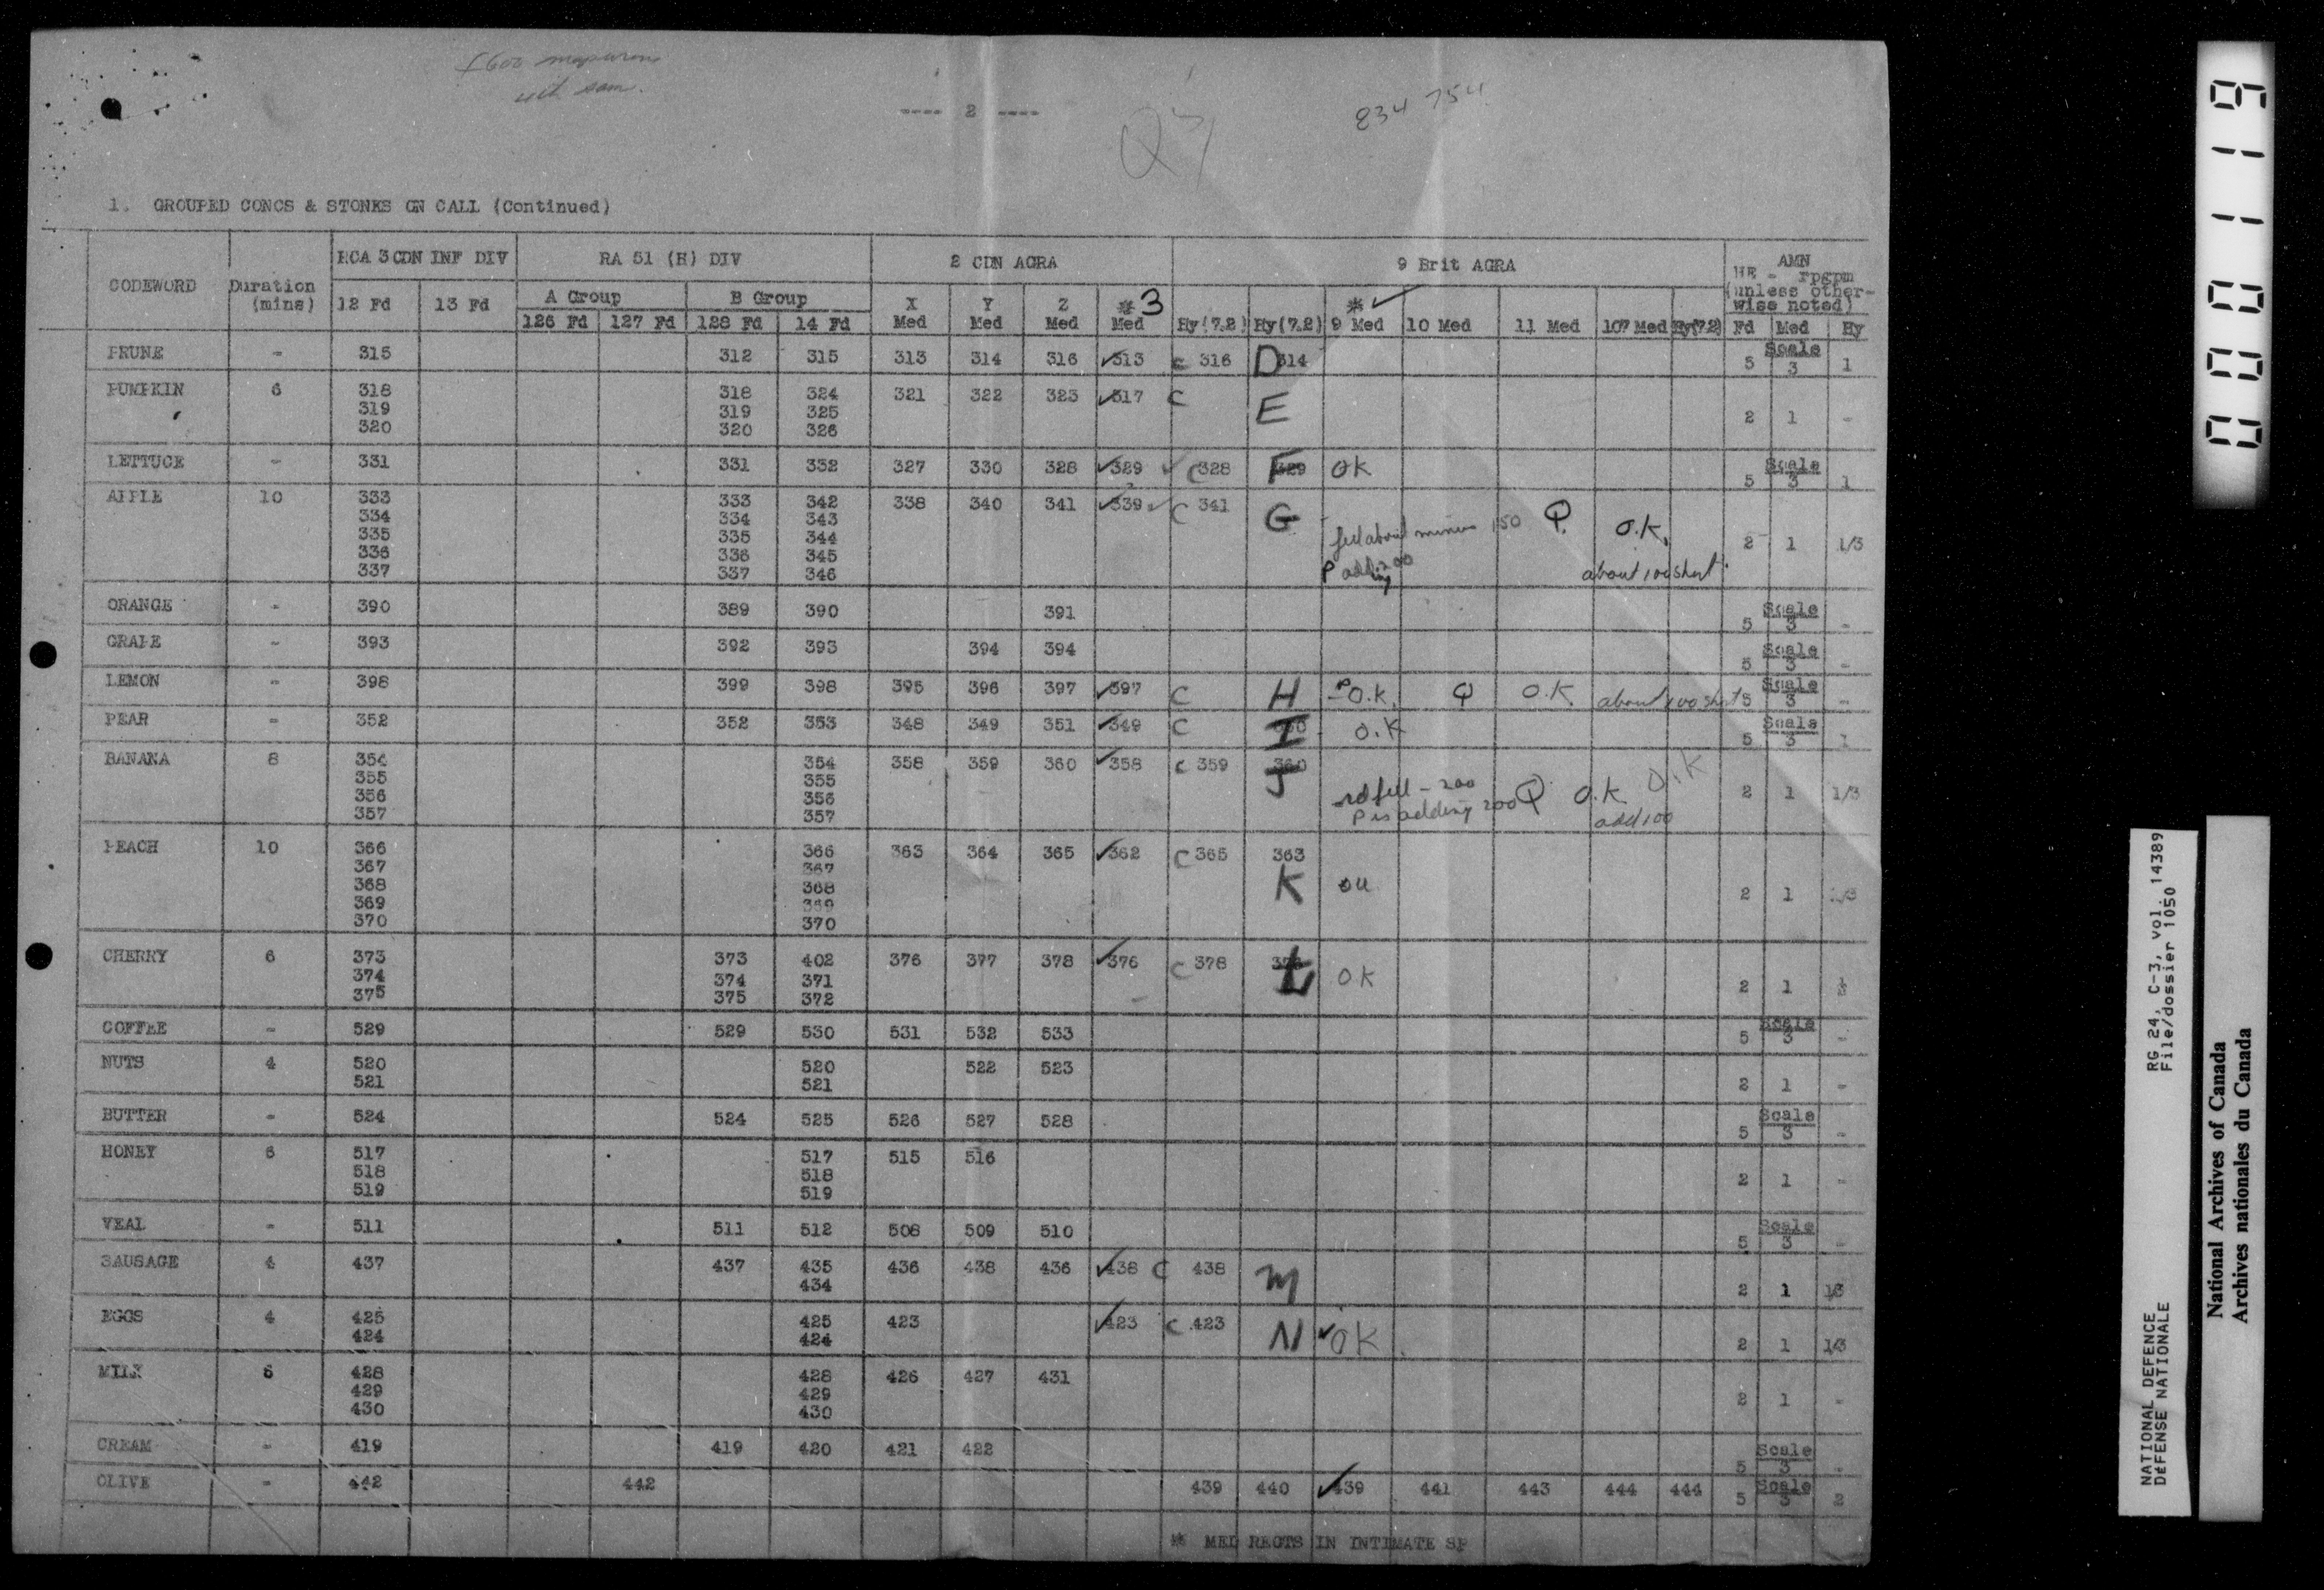 ---- 2 ----
834 754
1. GROUPED CONCS & STONKS ON CALL (Continued)
CODEWORD Duration (mins) RCA 3 CDN INF DIV RA 51 (H) DIV 2 CDN AGRA 9 Brit AGRA AMN
HE - rpgpm (unless otherwise noted)
A Group B Group
12 Fd 13 Fd 126 Fd 127 Fd 128 Fd 14 Fd X Med Y Med Z Med * 3 Med Hy(7.2) Hy(7.2) * ✓ 9 Med 10 Med 11 Med 107 Med Hy(7.2) Fd Med Hy
PRUNE - 315 312 315 313 314 316 ✓313 C 316 D 314 5 Scale 3 1
PUMPKIN 6 318 318 324 321 322 323 ✓317 C E 2 1 -
319 319 325
320 320 326
LETTUCE - 331 331 332 327 330 328 ✓329 ✓ C 328 F 329 OK 5 Scale 3 1
APPLE 10 333 333 342 338 340 341 ✓339 ✓ C 341 G 2 1 1/3
334 334 343
335 335 344 fell about minus 150 Q O.K.
336 336 345
337 337 346 P adding 200 about 100 short
ORANGE - 390 389 390 391 5 Scale 3 -
GRAPE - 393 392 393 394 394 5 Scale 3 -
LEMON - 398 399 398 395 396 397 ✓397 C H P O.K. Q O.K about 100 short 5 Scale 3 -
PEAR - 352 352 353 348 349 351 ✓349 C I O.K 5 Scale 3 1
BANANA 8 354 354 358 359 360 ✓358 C 359 360 J 2 1 1/3
355 355
356 356 rd fell - 200 Q O.K O.K
357 357 P is adding 200 add 100
PEACH 10 366 366 363 364 365 ✓362 C 365 363 2 1 1/3
367 367
368 368 K
369 369
370 370
CHERRY 6 373 373 402 376 377 378 ✓376 C 378 L OK 2 1
374 374 371
375 375 372
COFFEE - 529 529 530 531 532 533 5 Scale 3 -
NUTS 4 520 520 522 523 2 1 -
521 521
BUTTER - 524 524 525 526 527 528 5 Scale 3 -
HONEY 6 517 517 515 516 2 1 -
518 518
519 519
VEAL - 511 511 512 508 509 510 5 Scale 3 -
SAUSAGE 4 437 437 435 436 438 436 ✓438 C 438 M 2 1 1/3
434
EGGS 4 425 425 423 ✓423 C 423 N ✓OK 2 1 1/3
424 424
MILK 6 428 428 426 427 431 2 1 -
429 429
430 430
CREAM - 419 419 420 421 422 5 Scale 3 -
OLIVE - 442 442 439 440 ✓439 441 443 444 444 5 Scale 3 2
* MED REGTS IN INTIMATE SP
0000119
RG 24, C-3, vol. 14389
File/dossier 1050
NATIONAL DEFENCE
DÉFENSE NATIONALE
National Archives of Canada
Archives nationales du Canada